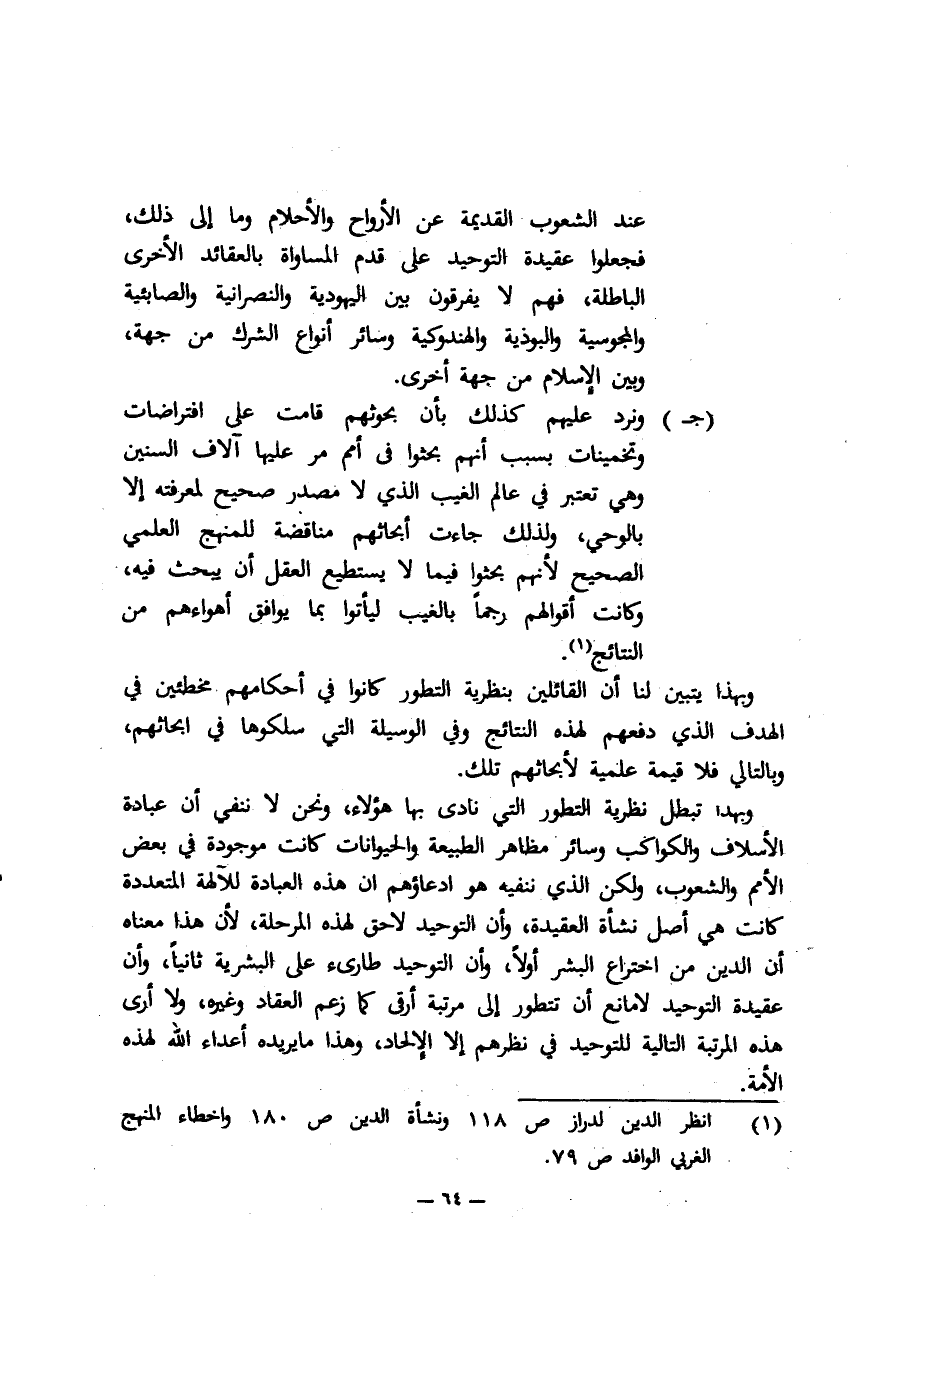 عند الشعوب القديمة عن الأرواح والأحلام وما إلى ذلك،
فجعلوا عقيدة التوحيد على قدم المساواة بالعقائد الأخرى
الباطلة، فهم لا يفرقون بين اليهودية والنصرانية والصابئية
والمجوسية والبوذية والهندوكية وسائر أنواع الشرك من جهة،
وبين الإسلام من جهة أخرى.
(جـ) ونرد عليهم كذلك بأن بحوثهم قامت على افتراضات
وتخمينات بسبب أنهم بحثوا فى أمم مر عليها آلاف السنين
وهي تعتبر في عالم الغيب الذي لا مصدر صحيح لمعرفته إلا
بالوحي، ولذلك جاءت أبحاثهم مناقضة للمنهج العلمي
الصحيح لأنهم بحثوا فيما لا يستطيع العقل أن يبحث فيه،
وكانت أقوالهم رجماً بالغيب ليأتوا بما يوافق أهواءهم من
النتائج(١).
وبهذا يتبين لنا أن القائلين بنظرية التطور كانوا في أحكامهم مخطئين في
الهدف الذي دفعهم لهذه النتائج وفي الوسيلة التي سلكوها في ابحاثهم،
وبالتالي فلا قيمة علمية لأبحاثهم تلك.
وبهذا تبطل نظرية التطور التي نادى بها هؤلاء، ونحن لا ننفي أن عبادة
الأسلاف والكواكب وسائر مظاهر الطبيعة والحيوانات كانت موجودة في بعض
الأمم والشعوب، ولكن الذي ننفيه هو ادعاؤهم ان هذه العبادة للآلهة المتعددة
كانت هي أصل نشأة العقيدة، وأن التوحيد لاحق لهذه المرحلة، لأن هذا معناه
أن الدين من اختراع البشر أولاً، وأن التوحيد طارىء على البشرية ثانياً، وأن
عقيدة التوحيد لامانع أن تتطور إلى مرتبة أرقى كما زعم العقاد وغيره، ولا أرى
هذه المرتبة التالية للتوحيد في نظرهم إلا الإلحاد، وهذا مايريده أعداء الله لهذه
الأمة.
(١) انظر الدين لدراز ص ١١٨ ونشأة الدين ص ١٨٠ واخطاء المنهج
الغربي الوافد ص ٧٩.
— ٦٤ —